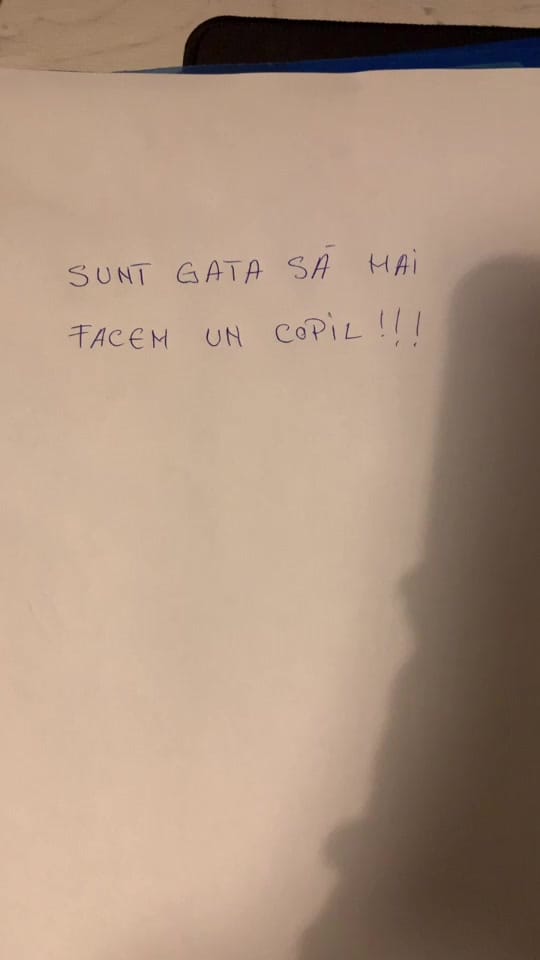 SUNT GATA SĂ MAI
FACEM UN COPIL!!!